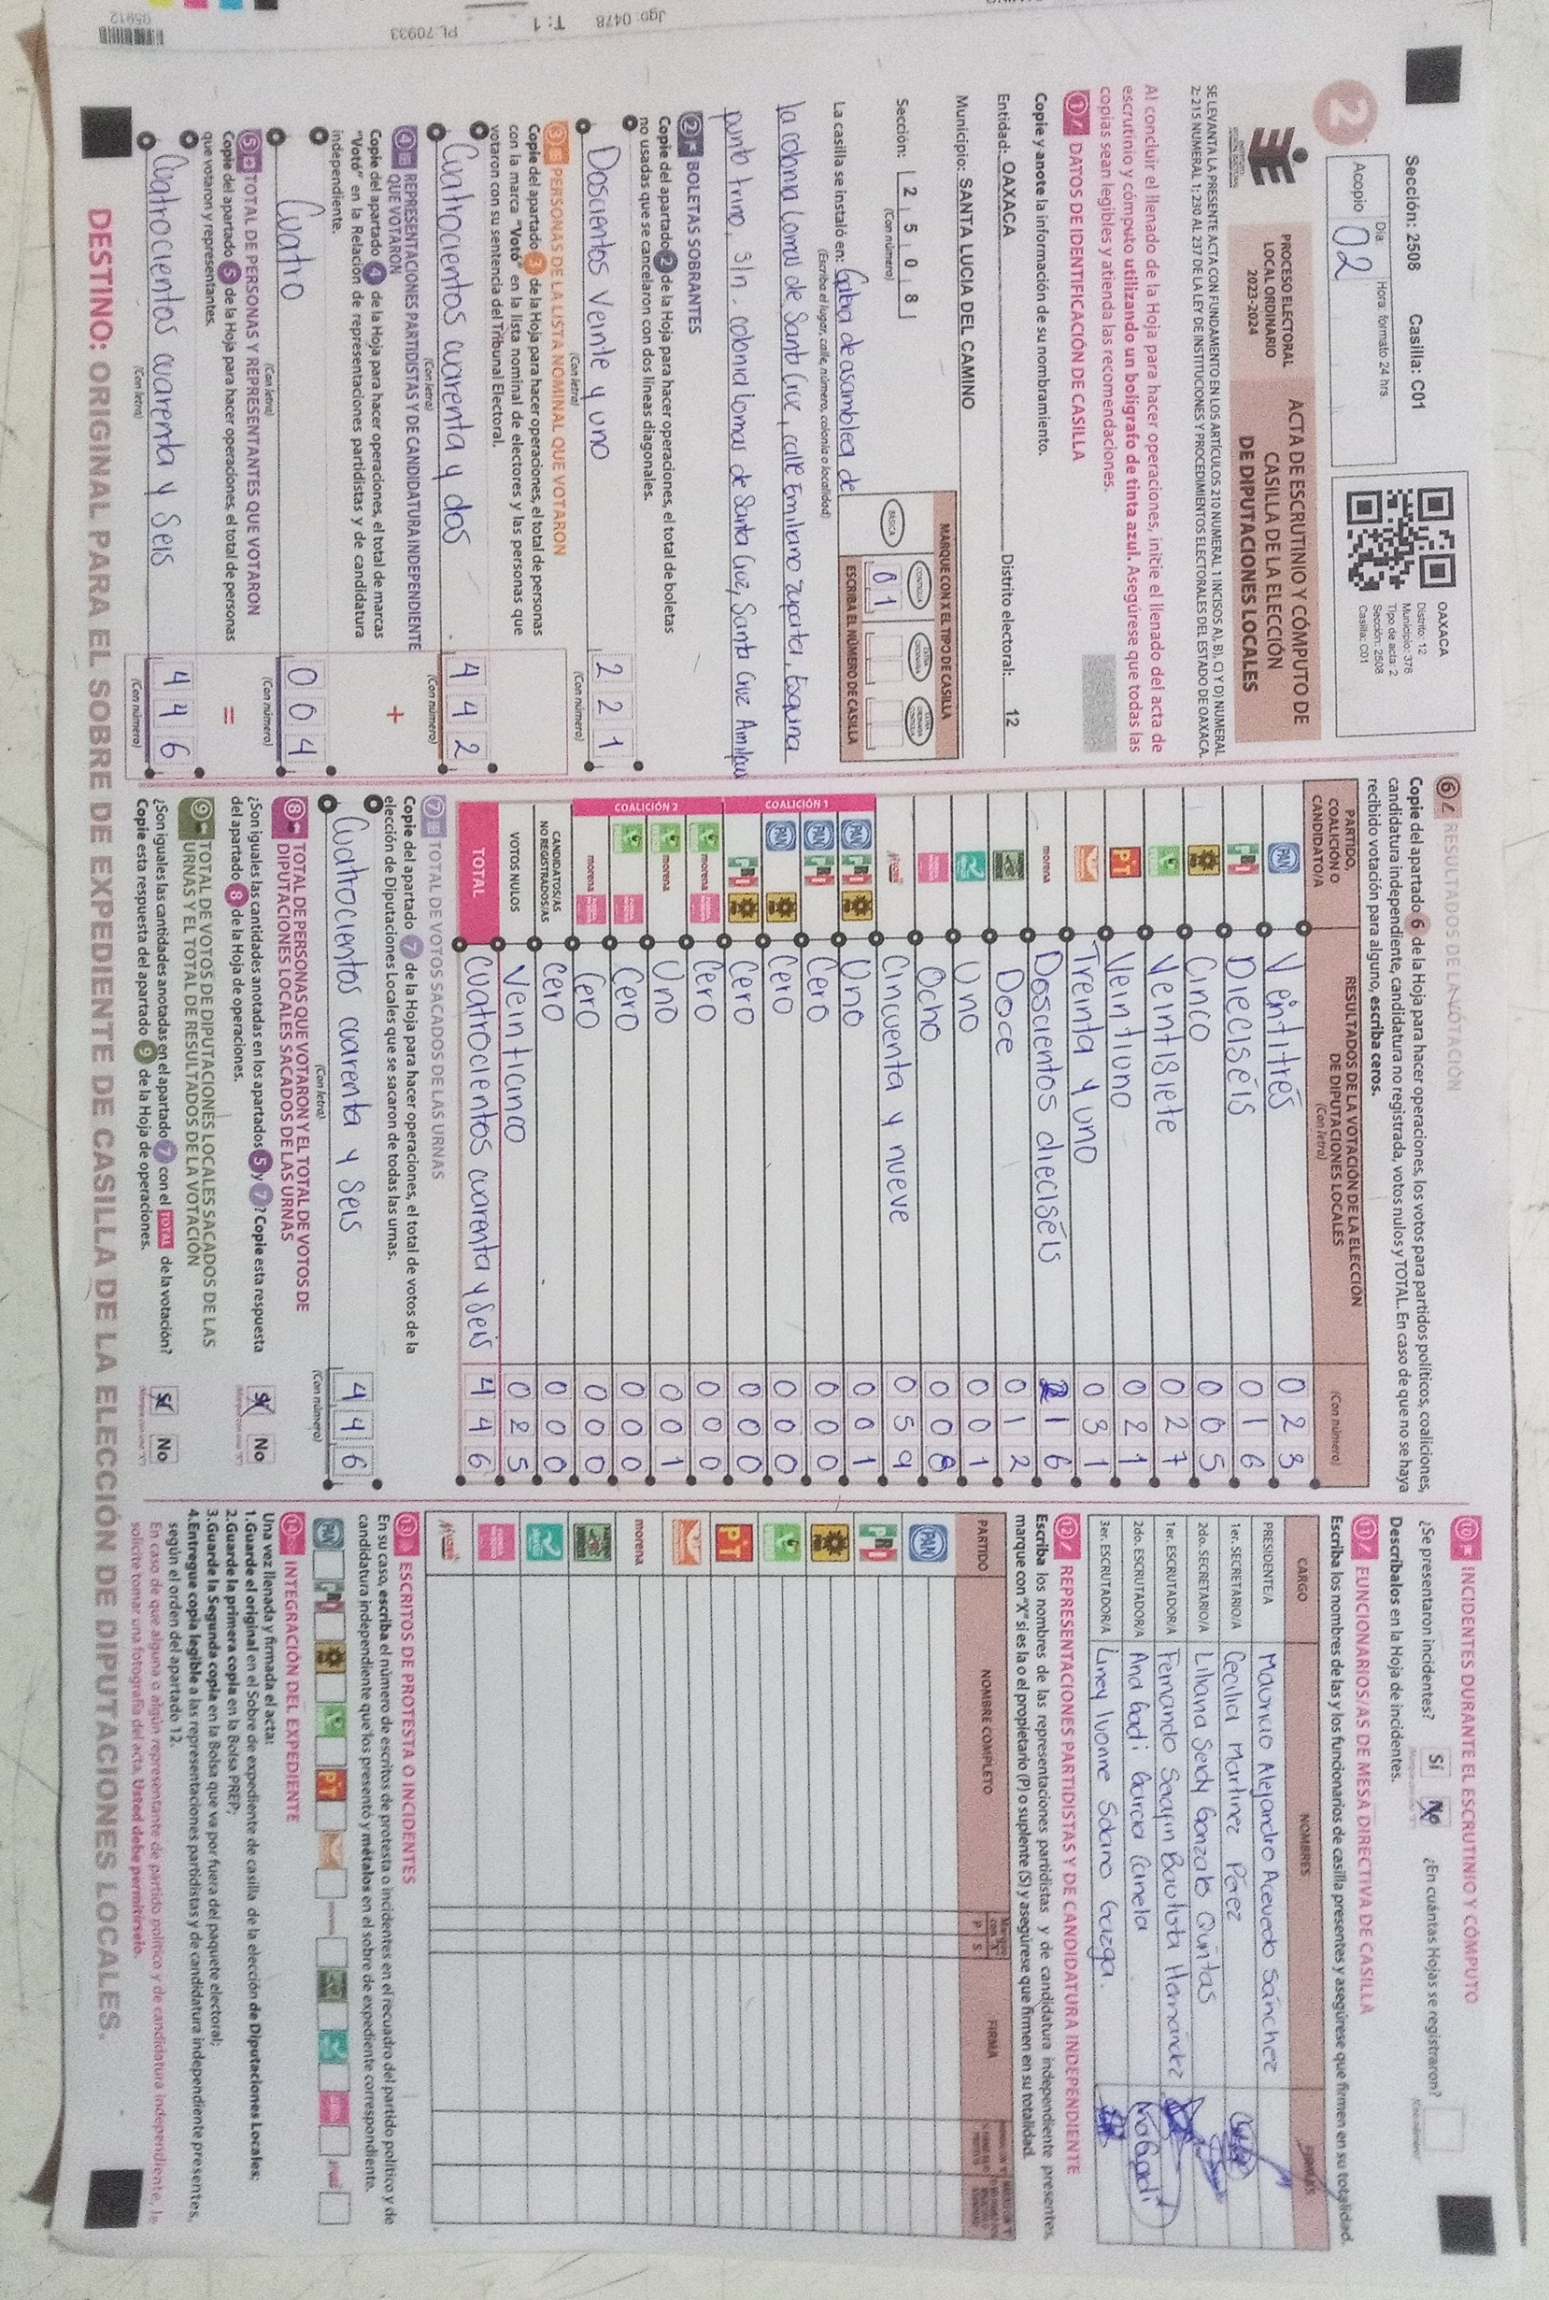 Sección: 2508 Casilla: C01
Día Hora: formato 24 hrs.
Acopio 02
OAXACA
Distrito: 12
Municipio: 376
Tipo de acta: 2
Sección: 2508
Casilla: C01
2
PROCESO ELECTORAL
LOCAL ORDINARIO
2023-2024
ACTA DE ESCRUTINIO Y CÓMPUTO DE
CASILLA DE LA ELECCIÓN
DE DIPUTACIONES LOCALES
SE LEVANTA LA PRESENTE ACTA CON FUNDAMENTO EN LOS ARTÍCULOS 210 NUMERAL 1 INCISOS A), B), C) Y D) NUMERAL
2; 215 NUMERAL 1; 230 AL 237 DE LA LEY DE INSTITUCIONES Y PROCEDIMIENTOS ELECTORALES DEL ESTADO DE OAXACA.
Al concluir el llenado de la Hoja para hacer operaciones, inicie el llenado del acta de
escrutinio y cómputo utilizando un bolígrafo de tinta azul. Asegúrese que todas las
copias sean legibles y atienda las recomendaciones.
1 DATOS DE IDENTIFICACIÓN DE CASILLA
Copie y anote la información de su nombramiento.
Entidad: OAXACA Distrito electoral: 12
Municipio: SANTA LUCIA DEL CAMINO
Sección: 2 5 0 8
(Con número)
MARQUE CON X EL TIPO DE CASILLA
BÁSICA CONTIGUA EXTRAORDINARIA EXTRAORDINARIA CONTIGUA
01
ESCRIBA EL NÚMERO DE CASILLA
La casilla se instaló en: Galba de asamblea de
(Escriba el lugar, calle, número, colonia o localidad)
la colonia Lomas de Santa Cruz, calle Emiliano zapata, Esquina
punto trino, S/n. colonia lomas de Santa Cruz, Santa Cruz Amilpas
2 BOLETAS SOBRANTES
Copie del apartado 2 de la Hoja para hacer operaciones, el total de boletas
no usadas que se cancelaron con dos líneas diagonales.
Doscientos veinte y uno 2 2 1
(Con letra) (Con número)
3 PERSONAS DE LA LISTA NOMINAL QUE VOTARON
Copie del apartado 3 de la Hoja para hacer operaciones, el total de personas
con la marca "Votó" en la lista nominal de electores y las personas que
votaron con su sentencia del Tribunal Electoral.
Cuatrocientos cuarenta y dos 4 4 2
(Con letra) (Con número)
4 REPRESENTACIONES PARTIDISTAS Y DE CANDIDATURA INDEPENDIENTE
QUE VOTARON
Copie del apartado 4 de la Hoja para hacer operaciones, el total de marcas
"Votó" en la Relación de representaciones partidistas y de candidatura
independiente.
+
Cuatro 0 0 4
(Con letra) (Con número)
5 TOTAL DE PERSONAS Y REPRESENTANTES QUE VOTARON
Copie del apartado 5 de la Hoja para hacer operaciones, el total de personas
que votaron y representantes.
=
Cuatrocientos cuarenta y Seis 4 4 6
(Con letra) (Con número)
6 RESULTADOS DE LA VOTACIÓN
Copie del apartado 6 de la Hoja para hacer operaciones, los votos para partidos políticos, coaliciones,
candidatura independiente, candidatura no registrada, votos nulos y TOTAL. En caso de que no se haya
recibido votación para alguno, escriba ceros.
PARTIDO, COALICIÓN O CANDIDATO/A RESULTADOS DE LA VOTACIÓN DE LA ELECCIÓN DE DIPUTACIONES LOCALES (Con letra) (Con número)
PAN Veintitrés 0 2 3
PRI Dieciséis 0 1 6
PRD Cinco 0 0 5
Veintisiete 0 2 7
PT Veintiuno 0 2 1
Treinta y uno 0 3 1
morena Doscientos dieciséis 2 1 6
Doce 0 1 2
Uno 0 0 1
Ocho 0 0 8
Cincuenta y nueve 0 5 9
COALICIÓN 1
PAN PRI PRD Uno 0 0 1
PAN PRI Cero 0 0 0
PAN PRD Cero 0 0 0
PRI PRD Cero 0 0 0
COALICIÓN 2
morena Cero 0 0 0
morena Uno 0 0 1
Cero 0 0 0
morena Cero 0 0 0
CANDIDATOS/AS NO REGISTRADOS/AS Cero 0 0 0
VOTOS NULOS Veinticinco 0 2 5
TOTAL Cuatrocientos cuarenta y Seis 4 4 6
7 TOTAL DE VOTOS SACADOS DE LAS URNAS
Copie del apartado 7 de la Hoja para hacer operaciones, el total de votos de la
elección de Diputaciones Locales que se sacaron de todas las urnas.
Cuatrocientos cuarenta y Seis 4 4 6
(Con letra) (Con número)
8 TOTAL DE PERSONAS QUE VOTARON Y EL TOTAL DE VOTOS DE
DIPUTACIONES LOCALES SACADOS DE LAS URNAS
¿Son iguales las cantidades anotadas en los apartados 5 y 7? Copie esta respuesta Sí No
del apartado 8 de la Hoja de operaciones.
9 TOTAL DE VOTOS DE DIPUTACIONES LOCALES SACADOS DE LAS
URNAS Y EL TOTAL DE RESULTADOS DE LA VOTACIÓN
¿Son iguales las cantidades anotadas en el apartado 7 con el TOTAL de la votación? Sí No
Copie esta respuesta del apartado 9 de la Hoja de operaciones.
10 INCIDENTES DURANTE EL ESCRUTINIO Y CÓMPUTO
¿Se presentaron incidentes? Sí No ¿En cuántas Hojas se registraron?
Descríbalos en la Hoja de incidentes.
11 FUNCIONARIOS/AS DE MESA DIRECTIVA DE CASILLA
Escriba los nombres de las y los funcionarios de casilla presentes y asegúrese que firmen en su totalidad.
CARGO NOMBRES FIRMAS
PRESIDENTE/A Mauricio Alejandro Acevedo Sánchez
1er. SECRETARIO/A Cecilia Martínez Páez
2do. SECRETARIO/A Liliana Seidy Gonzalo Quintas
1er. ESCRUTADOR/A Fernando Serafin Bautista Hernández
2do. ESCRUTADOR/A Ana Gadi García Canela
3er. ESCRUTADOR/A Liney Ivonne Solano Gaizga.
12 REPRESENTACIONES PARTIDISTAS Y DE CANDIDATURA INDEPENDIENTE
Escriba los nombres de las representaciones partidistas y de candidatura independiente presentes,
marque con "X" si es la o el propietario (P) o suplente (S) y asegúrese que firmen en su totalidad.
PARTIDO NOMBRE COMPLETO P S FIRMA
PAN
PRI
PRD
PT
morena
13 ESCRITOS DE PROTESTA O INCIDENTES
En su caso, escriba el número de escritos de protesta o incidentes en el recuadro del partido político y de
candidatura independiente que los presentó y métalos en el sobre de expediente correspondiente.
14 INTEGRACIÓN DEL EXPEDIENTE
Una vez llenada y firmada el acta:
1.Guarde el original en el Sobre de expediente de casilla de la elección de Diputaciones Locales;
2.Guarde la primera copia en la Bolsa PREP;
3.Guarde la Segunda copia en la Bolsa que va por fuera del paquete electoral;
4.Entregue copia legible a las representaciones partidistas y de candidatura independiente presentes,
según el orden del apartado 12.
En caso de que alguna o algún representante de partido político y de candidatura independiente, le
solicite tomar una fotografía del acta, usted debe permitírselo.
DESTINO: ORIGINAL PARA EL SOBRE DE EXPEDIENTE DE CASILLA DE LA ELECCIÓN DE DIPUTACIONES LOCALES.
Jgo: 0478 T: 1 PL: 70933 05912